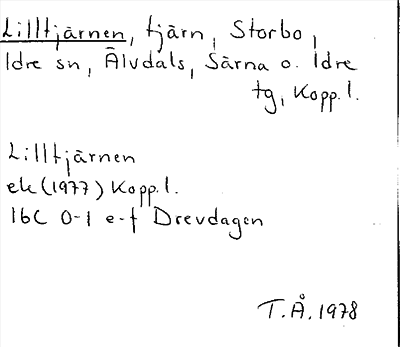 Lilltjärnen, tjärn, Storbo,
Idre sn, Älvdals, Särna o. Idre
tg, Kopp. l.
Lilltjärnen
ek (1977) Kopp. l.
16C 0-1 e-f Drevdagen
T.Å. 1978